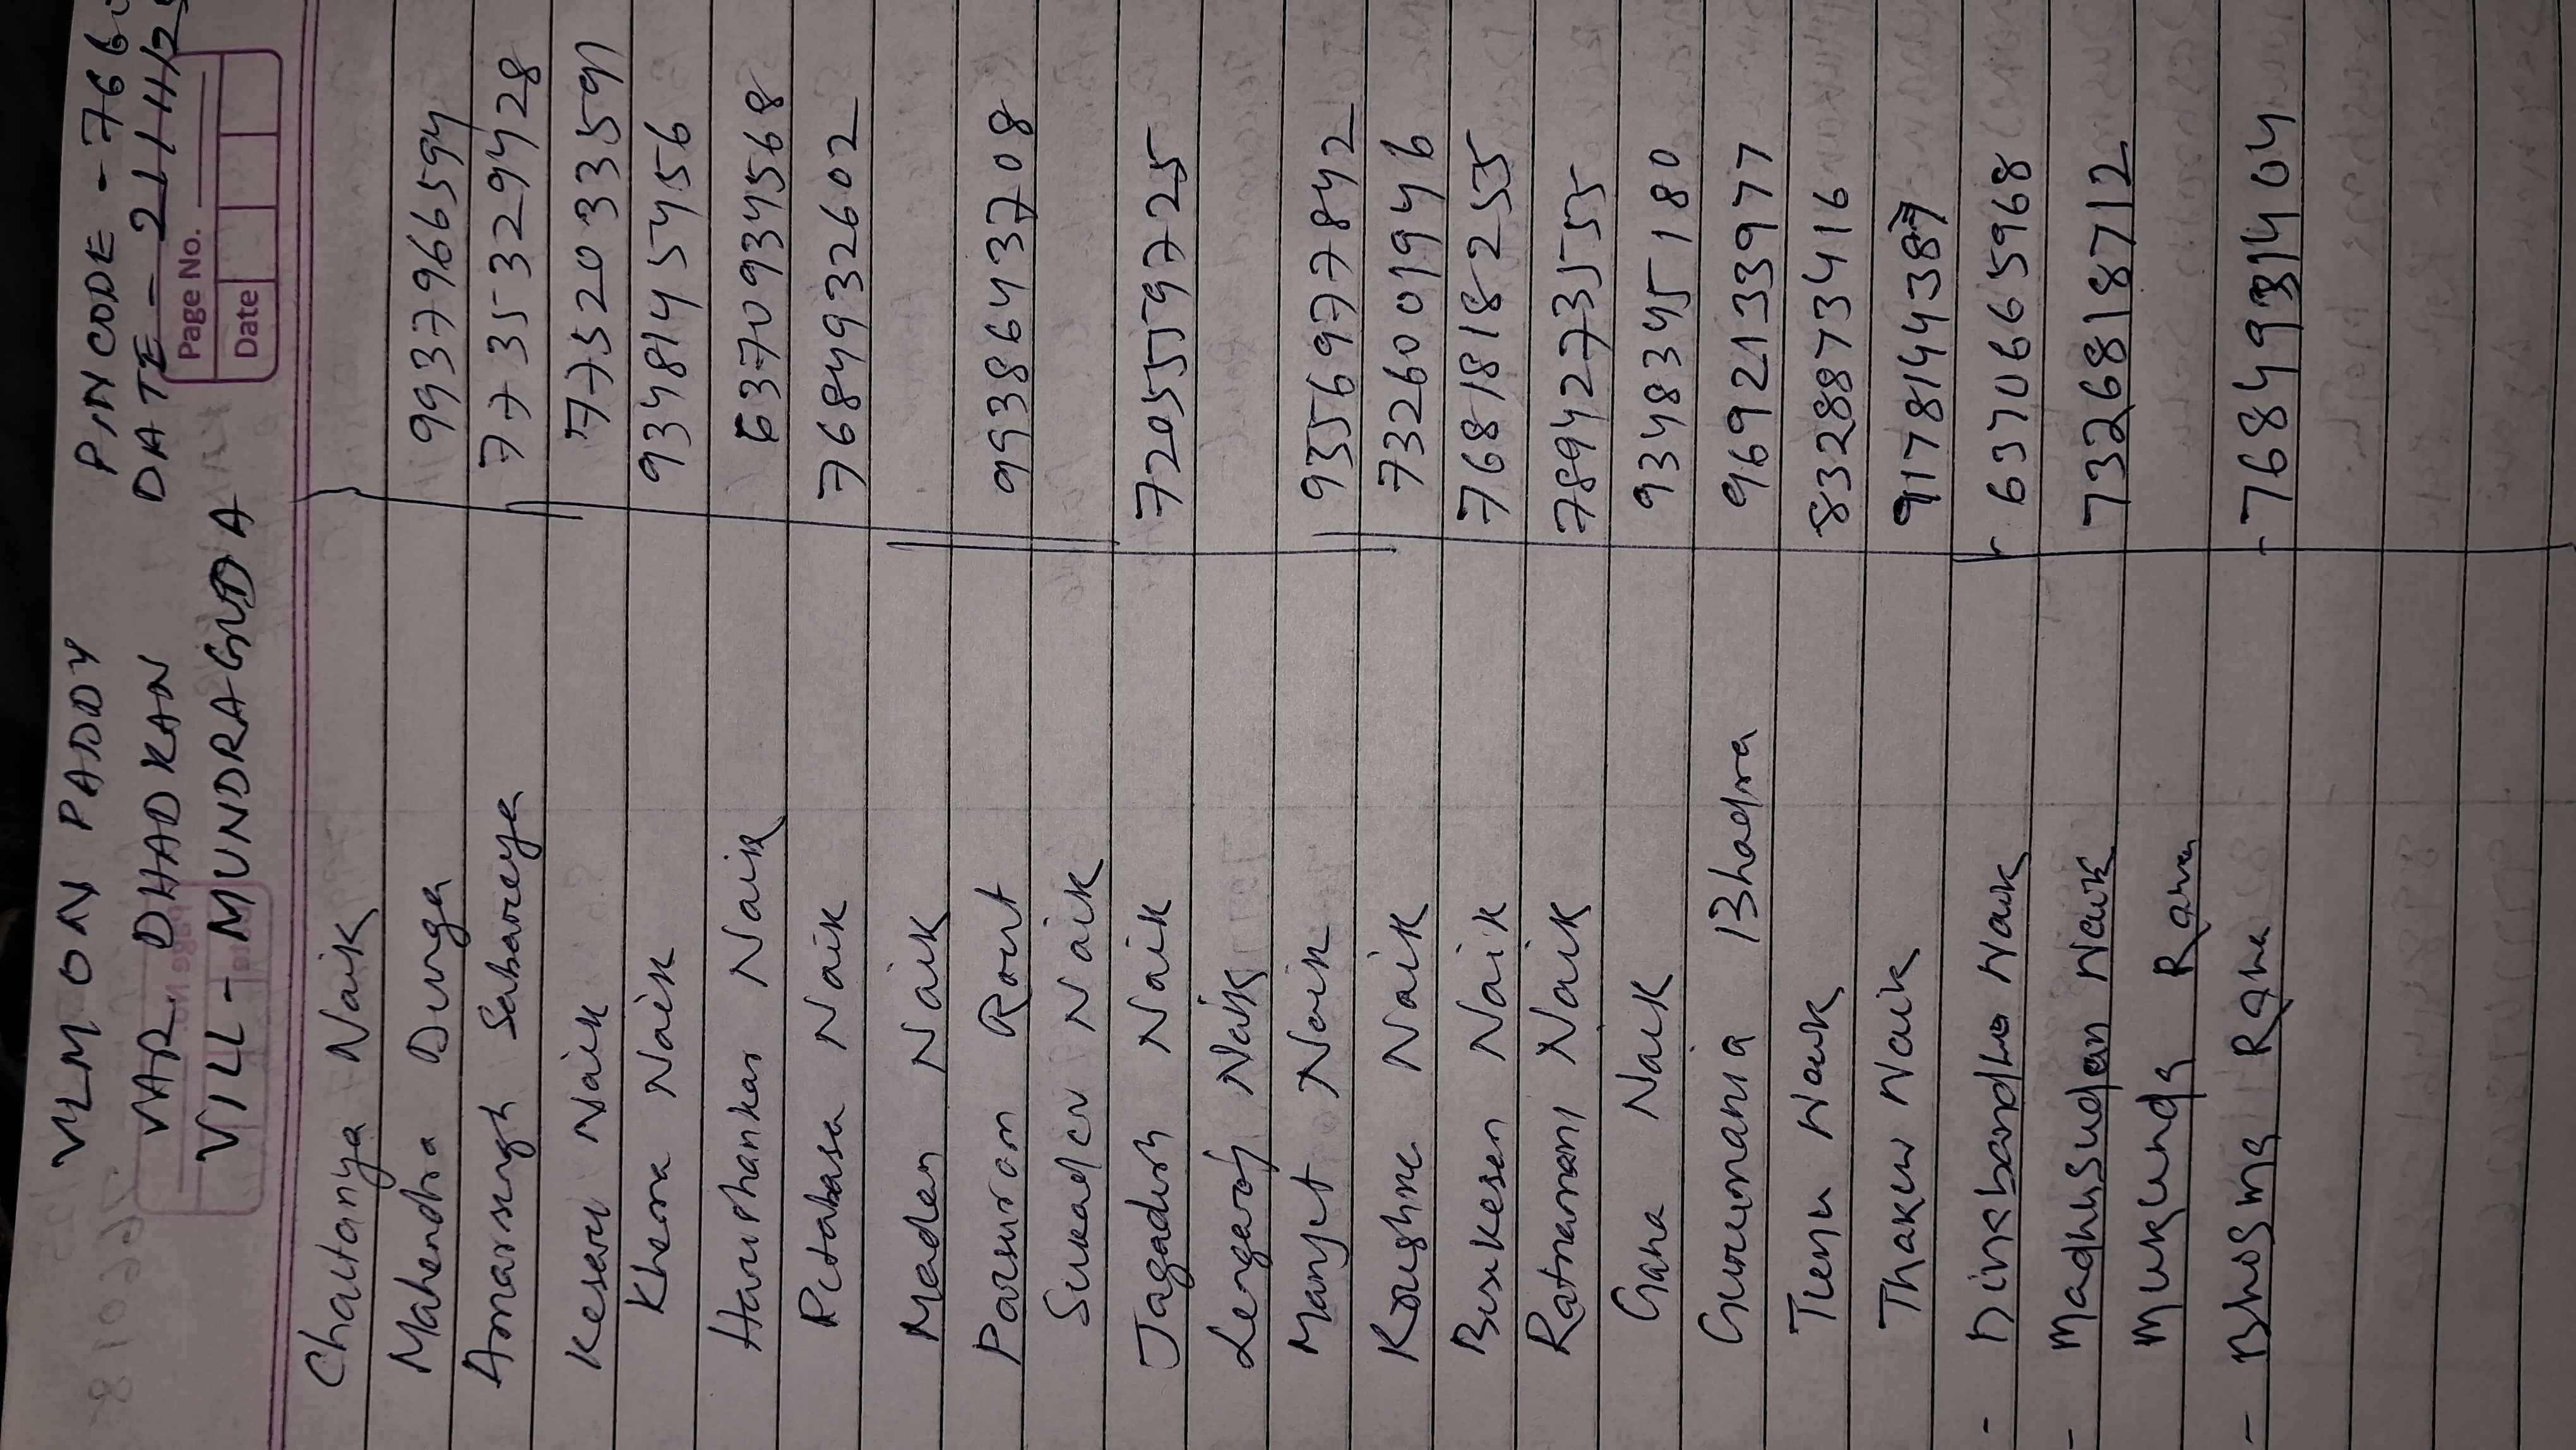 VLM ON PADDY PINCODE - 766
VAR. DHADKAN DATE - 21/11/2
VILL - MUNDRAGUDA
Page No.
Date
Chaitanya Naik
Mahendra Durga 9937966594
Amarsingh Sabareya 7735329428
Kesaru Naik 7752033591
Khema Naik 9348145456
Hariphankar Naik 6370934568
Pitabasa Naik 7684932602
Madan Naik
Parsuram Rout 9938643708
Sukadev Naik
Jagadish Naik 7205559725
Naik
Manjit Naik 9356977842
Koushne Naik 7326001946
Bisikesan Naik 7681818255
Ratnamani Naik 7894273555
Gana Naik 9348345180
Gurumania Bhadra 9692133977
Tienu Naik 8328873416
Thakur Naik 9178144387
- Dinabandhu Naik 6370665968
- Madhusudan Naik 7326818712
Mukunda Rana
- Bhosma Rana - 7684931404